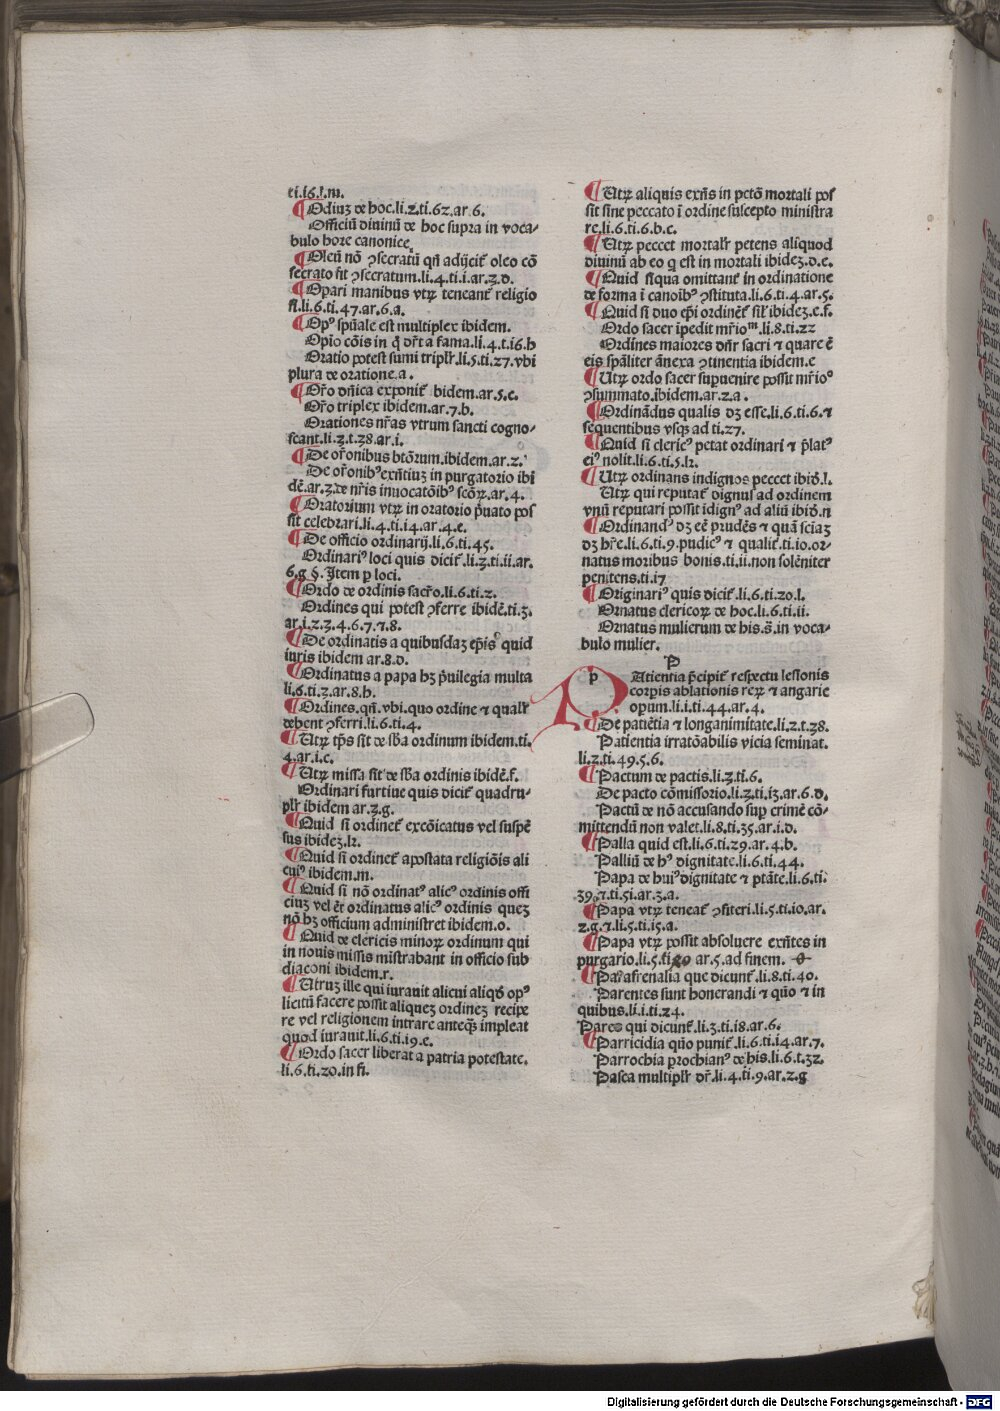 ti.16.l.m.
¶Odiuꝫ de hoc.li.2.ti.62.ar.6.
Officiū diuinū de hoc supra in voca-
bulo hore canonice
¶Oleū nō ꝯsecratū qñ adijcit᷑ oleo cō
secrato fit ꝯsecratum.li.4.ti.i.ar.3.d.
¶Opari manibus vtꝝ teneant᷑ religio
si.li.6.ti.47.ar.6.a.
¶Opꝰ spūale est multiplex ibidem.
Opio cōis in q̄ dr̄t a fama.li.4.t.16.h
Oratio potest sumi triplr̄.li.5.ti.27.vbi
plura de oratione.a.
¶Or̄o dn̄ica exponit᷑ ibidem.ar.5.e.
Or̄o triplex ibidem.ar.7.b.
Orationes nr̄as vtrum sancti cogno-
scant.li.3.t.38.ar.i.
¶De or̄onibus btōrum.ibidem.ar.2.
De or̄onibꝰ exn̄tiuꝫ in purgatorio ibi
dē.ar.3.de nr̄is inuocatōibꝰ scōꝝ.ar.4.
¶Oratorium vtꝝ in oratorio p̄uato pos
sit celebrari.li.4.ti.14.ar.4.e.
¶De officio ordinarij.li.6.ti.45.
Ordinariꝰ loci quis dicit᷑.li.3.ti.ii.ar.
6.g §. Item ꝑ loci.
¶Ordo de ordinis sacr̄o.li.6.ti.2.
Ordines qui potest ꝯferre ibidē.ti.3.
ar.i.2.3.4.6.7.⁊.8.
¶De ordinatis a quibusdaꝫ ep̄is quid
iuris ibidem ar.8.d.
¶Ordinatus a papa hꝫ p̄uilegia multa
li.6.ti.3.ar.8.h.
¶Ordines.qñ.vbi.quo ordine ⁊ qualr̄
debent ꝯferri.li.6.ti.4.
¶Utꝝ tp̄s sit de sb̄a ordinum ibidem.ti.
4.ar.i.c.
¶Utꝝ missa sit de sb̄a ordinis ibidē.f.
Ordinari furtiue quis dicit᷑ quadru-
plr̄ ibidem ar.3.g.
¶Quid si ordinet᷑ excōicatus vel suspē
sus ibideꝫ.k.
¶Quid si ordinet᷑ apostata religiōis ali
cuiꝰ ibidem.m.
¶Quid si nō ordinatꝰ alicꝰ ordinis offi
ciuꝫ vel ēt ordinatus alicꝰ ordinis queꝫ
nō hꝫ officium administret ibidem.o.
¶Quid de clericis minoꝝ ordinum qui
in nouis missis mistrabant in officio sub
diaconi ibidem.r.
¶Utruꝫ ille qui iurauit alicui aliqd̄ opꝰ
licitū facere possit aliqueꝫ ordineꝫ recipe
re vel religionem intrare anteqꝫ impleat
quod iurauit.li.6.ti.19.e.
¶Ordo sacer liberat a patria potestate.
li.6.ti.20.in fi.
¶Utꝝ aliquis exn̄s in pctō mortali pos
sit sine peccato ī ordine suscepto ministra
re.li.6.ti.6.b.c.
¶Utꝝ peccet mortalr̄ petens aliquod
diuinū ab eo q̄ est in mortali ibideꝫ.d.e.
¶Quid si qua omittant᷑ in ordinatione
de forma ī canoībꝰ ꝯstituta.li.6.ti.4.ar.5.
¶Quid si duo ep̄i ordinēt sil̄ ibideꝫ.e.f.
Ordo sacer īpedit mr̄ioᵐ.li.8.ti.22
Ordines maiores dn̄r sacri ⁊ quare ē
eis spāliter ānexa ꝯtinentia ibidem.c
¶Utꝝ ordo sacer supuenire possit mr̄ioᵒ
ꝯsummato.ibidem.ar.2.a.
¶Ordinādus qualis dꝫ esse.li.6.ti.6.⁊
sequentibus vsqꝫ ad ti.27.
¶Quid si clericꝰ petat ordinari ⁊ p̄latꝰ
eiꝰ nolit.li.6.ti.5.k.
¶Utꝝ ordinans indignos peccet ibiō.l.
Utꝝ qui reputat᷑ dignus ad ordinem
vnū reputari possit īdignꝰ ad aliū ibiō.n
¶Ordinandꝰ dꝫ eē prudēs ⁊ quā sciaꝫ
dꝫ hr̄e.li.6.ti.9.pudicꝰ ⁊ qualit᷑.ti.10.or-
natus moribus bonis.ti.ii.non solēniter
penitens.ti.17
¶Originariꝰ quis dicit᷑.li.6.ti.20.l.
Ornatus clericoꝝ de hoc.li.6.ti.ii.
Ornatus mulierum de his.s̄.in voca-
bulo mulier.
P
p
PAtientia p̄cipit᷑ respectu lesionis
corpis ablationis reꝝ ⁊ angarie
opum.li.i.ti.44.ar.4.
¶De patiētia ⁊ longanimitate.li.2.t.38.
Patientia irratōabilis vicia seminat.
li.2.ti.49.5.6.
¶Pactum de pactis.li.3.ti.6.
De pacto cōmissorio.li.3.ti.13.ar.6.d.
Pactū de nō accusando sup crimē cō-
mittendū non valet.li.8.ti.35.ar.i.d.
¶Palla quid est.li.6.ti.29.ar.4.b.
Palliū de hꝰ dignitate.li.6.ti.44.
Papa de huiꝰ dignitate ⁊ ptāte.li.6.ti.
39.⁊.ti.51.ar.3.a.
¶Papa vtꝝ teneat᷑ ꝯfiteri.li.5.ti.10.ar.
2.g.⁊.li.5.ti.15.a.
¶Papa vtꝝ possit absoluere exn̄tes in
purgario.li.5.ti.29 ar.5.ad finem.
¶Parafrenalia que dicunt᷑.li.8.ti.40.
Parentes sunt honerandi ⁊ quō ⁊ in
quibus.li.i.ti.24.
Pares qui dicunt᷑.li.3.ti.18.ar.6.
¶Parricidia quō punit᷑.li.6.ti.14.ar.7.
Parrochia ꝑrochianꝰ de his.li.6.t.32.
Pasca multiplr̄ dr̄.li.4.ti.9.ar.2.g
Digitalisierung gefördert durch die Deutsche Forschungsgemeinschaft - DFG